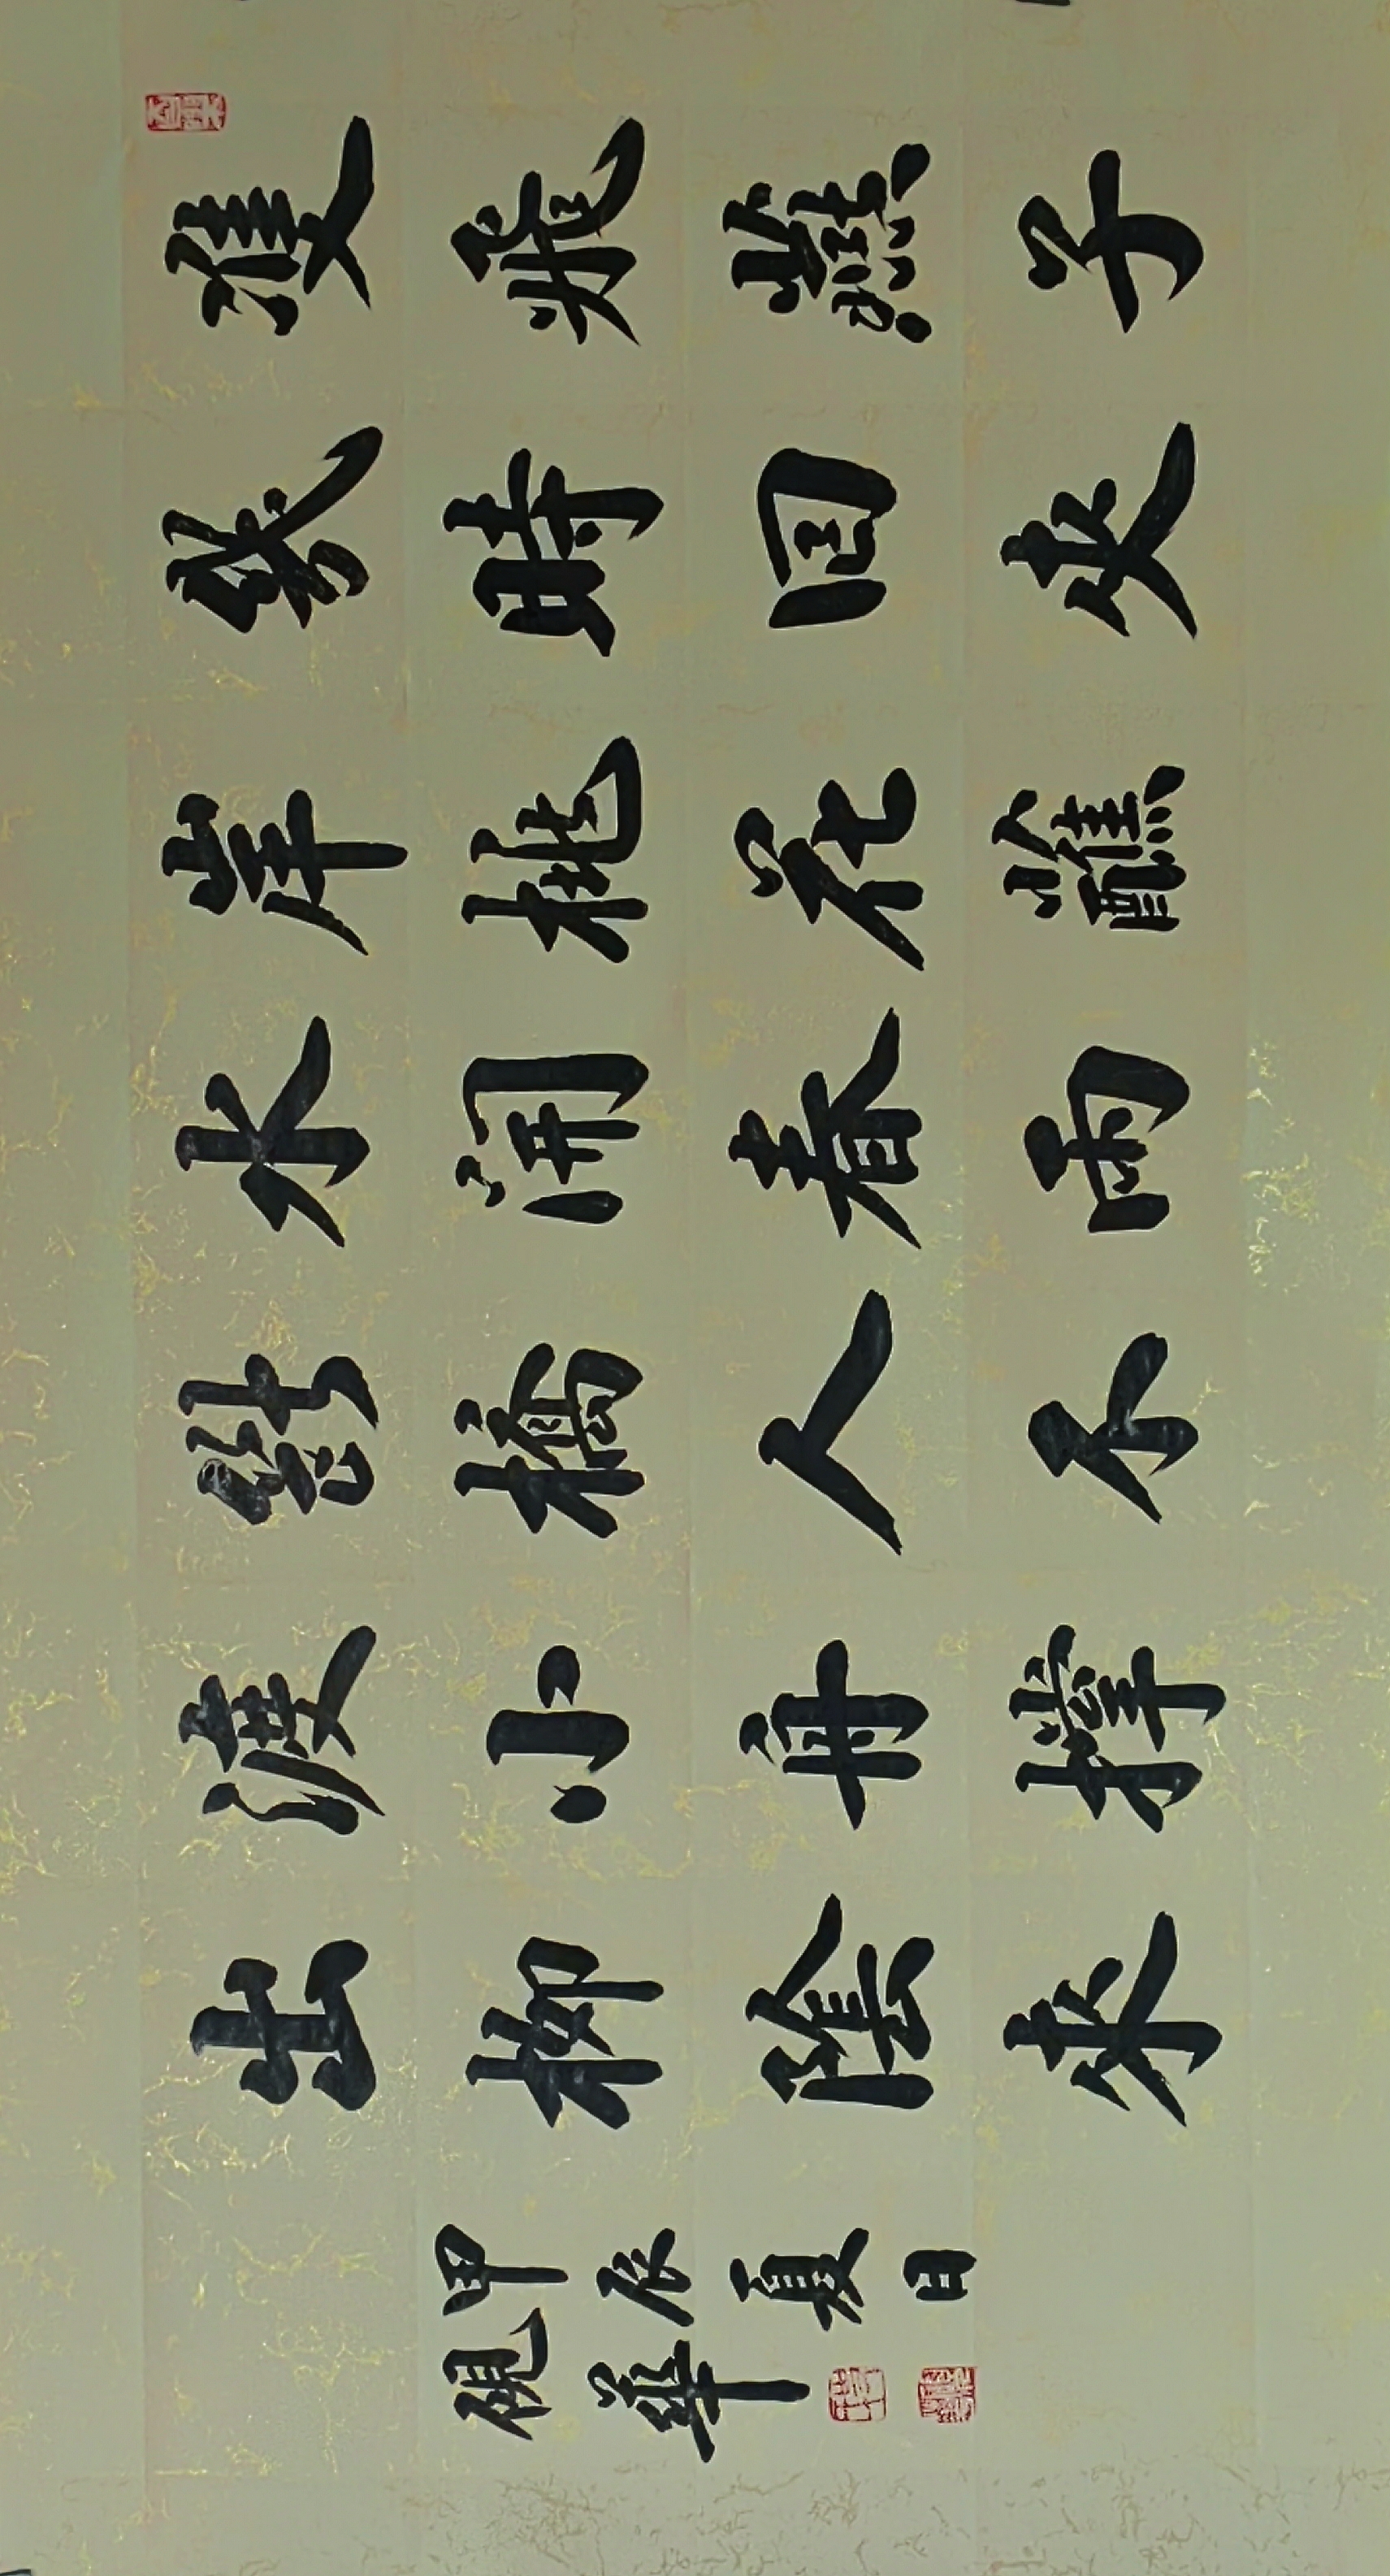 雙飛燕子
幾時回夾
岸桃花蘸
水開春雨
斷橋人不
渡小舟撑
出柳陰來
甲辰夏日
硯華